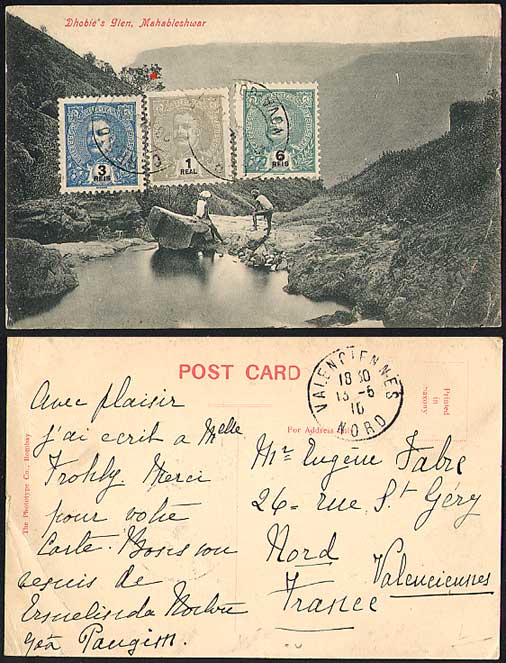 Dhobie's Glen, Mahableshwar
3
REIS
1
REAL
6
REIS
POST CARD
VALENCIENNES
18 30
13 - 5
10
NORD
Printed
in
Saxony
For Address
The Phototype Co., Bombay
Avec plaisir
j'ai ecrit a Melle
Frohly. Merci
pour votre
Carte. Bons
de
Ermelinda
Goa Pangim.
Mr Eugène Fabre
26 = rue St Géry
Nord
Valenciennes
France